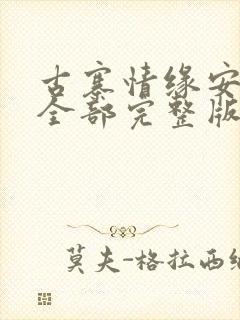 古寨情缘安
全部完整版
莫夫-格拉西纳